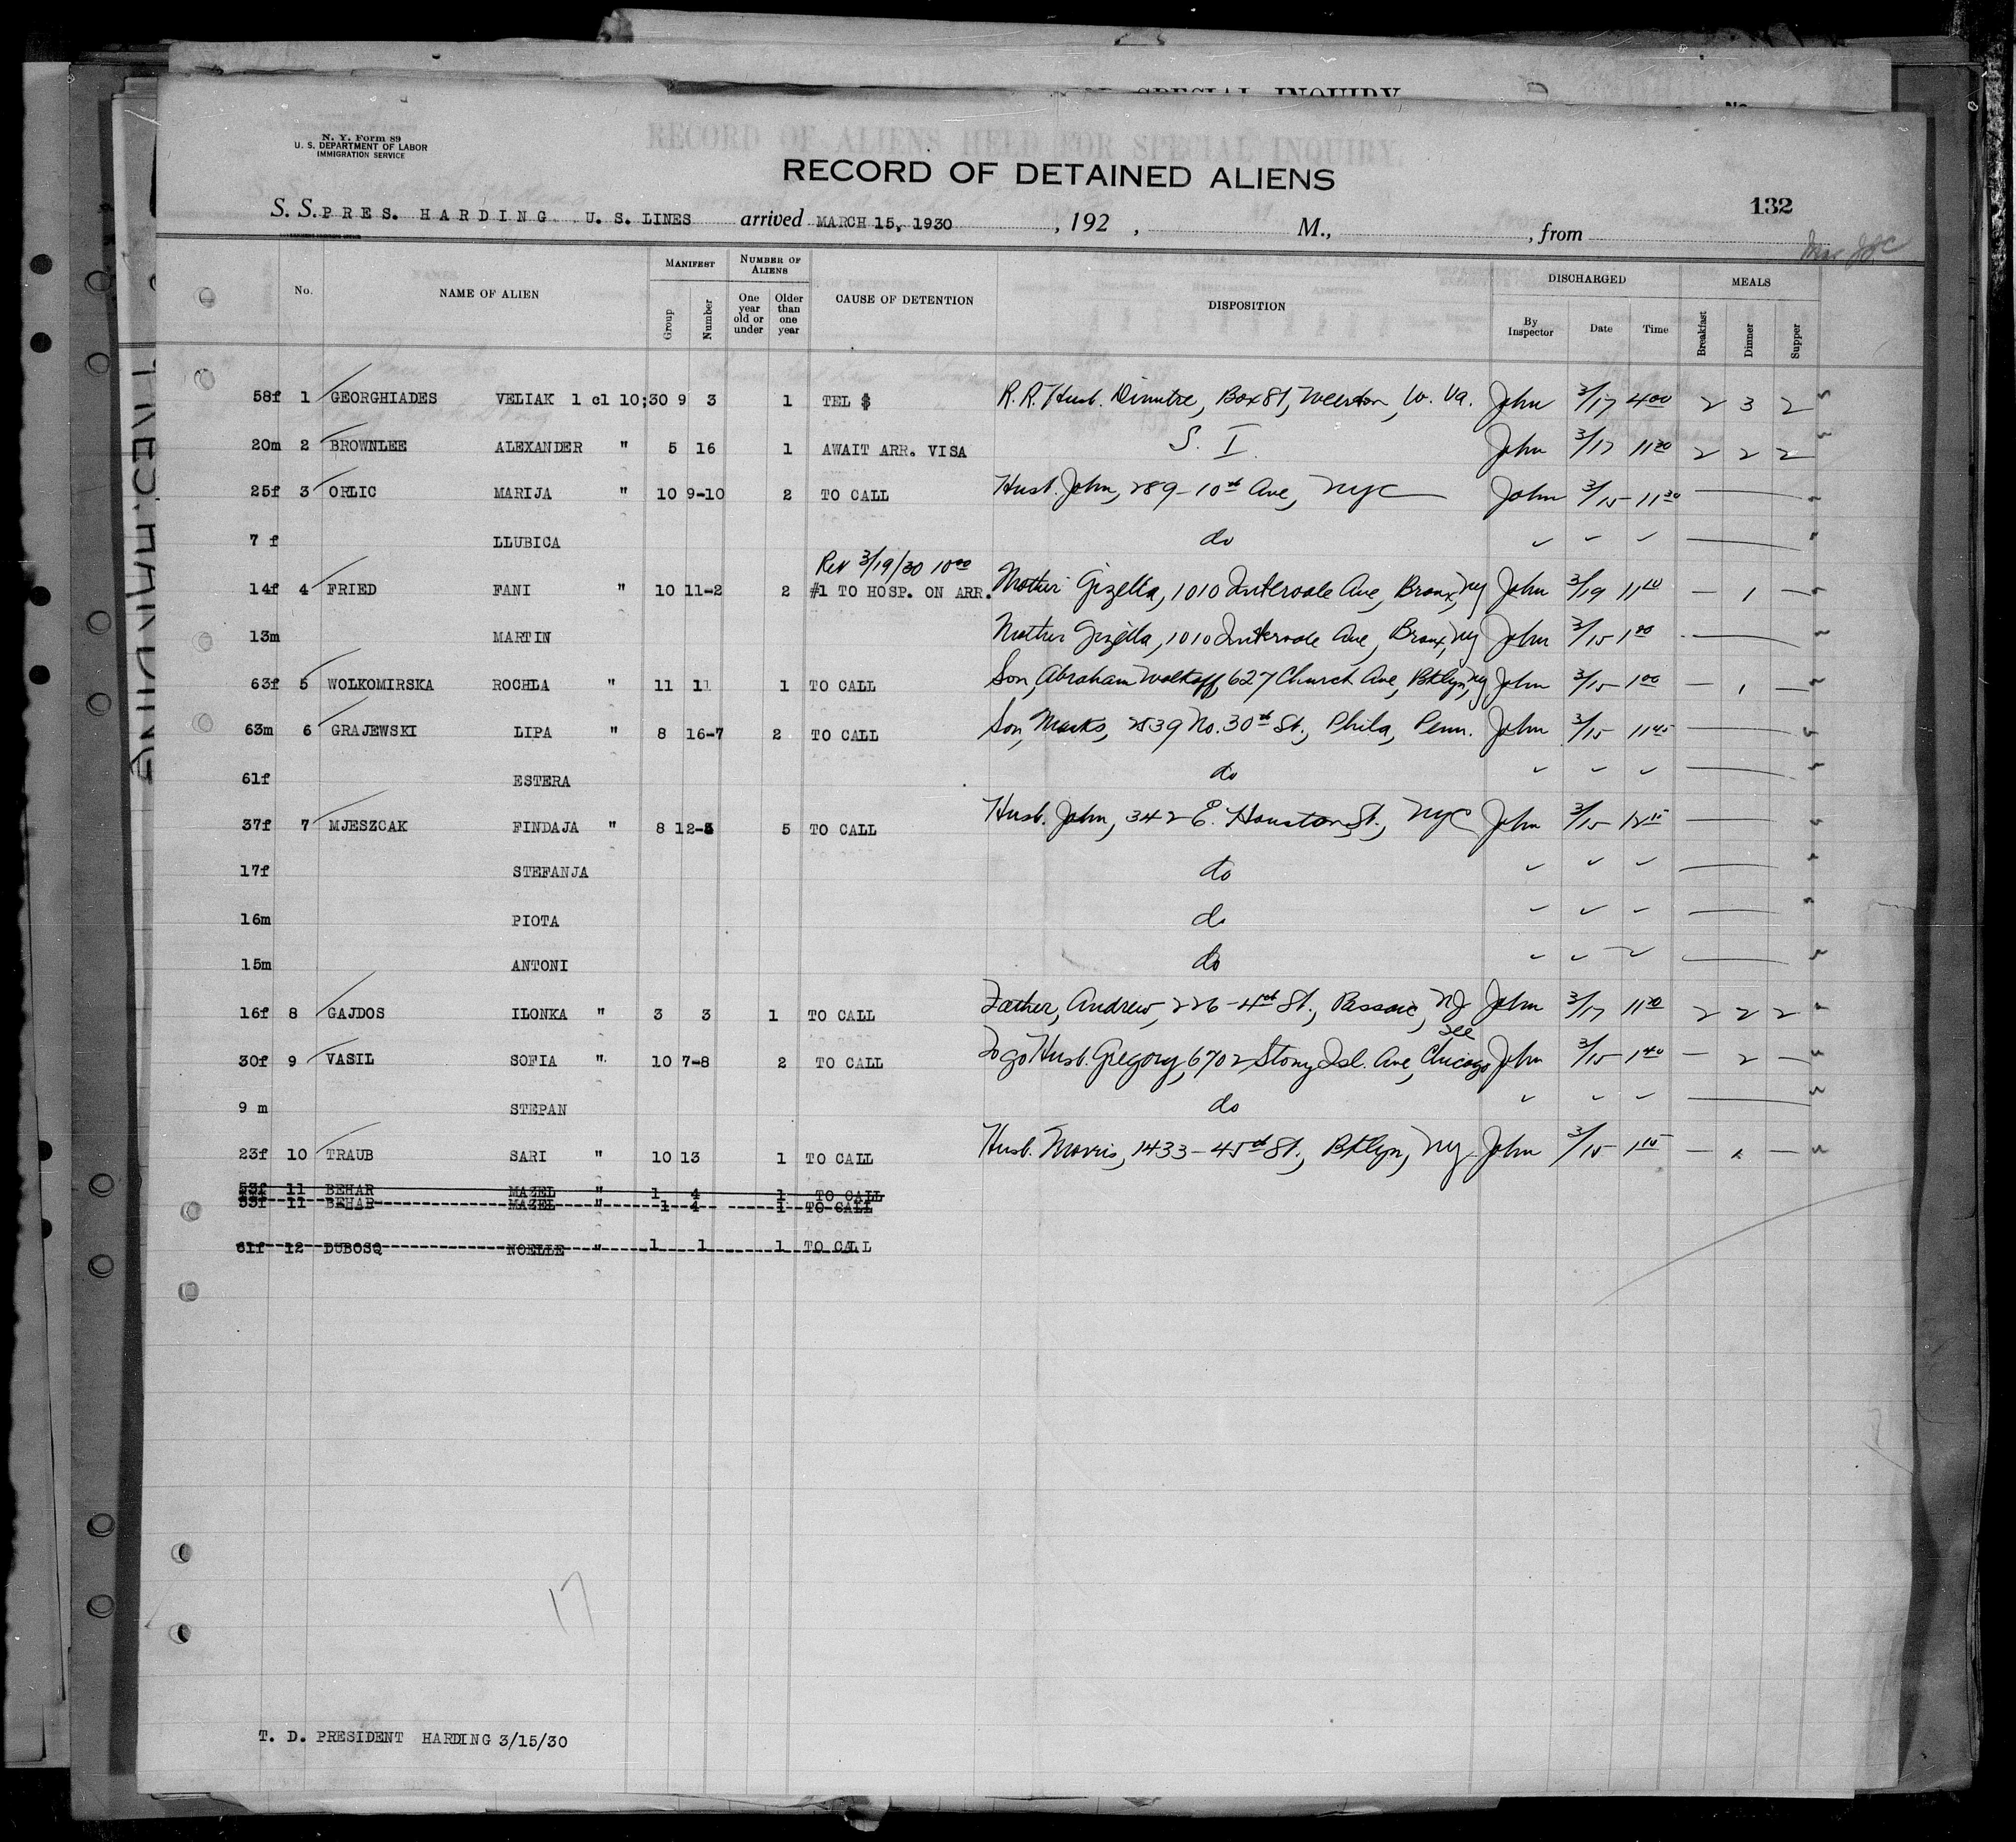 SPECIAL INQUIRY
No.
N. Y. Form 89
U. S. DEPARTMENT OF LABOR
IMMIGRATION SERVICE
RECORD OF ALIENS HELD FOR SPECIAL INQUIRY
RECORD OF DETAINED ALIENS
132
S. S. PRES. HARDING U. S. LINES arrived MARCH 15, 1930, 192 , M., from
No. NAME OF ALIEN MANIFEST Group Number NUMBER OF ALIENS One year old or under Older than one year CAUSE OF DETENTION DISPOSITION DISCHARGED By Inspector Date Time MEALS Breakfast Dinner Supper
58f 1 GEORGHIADES VELIAK 1 cl 10;30 9 3 1 TEL $ R.R. Husb. Dimitre, Box 81, Weirton, W. Va. John 3/17 4 00 2 3 2
20m 2 BROWNLEE ALEXANDER " 5 16 1 AWAIT ARR. VISA S. I. John 3/17 11 20 2 2 2
25f 3 ORLIC MARIJA " 10 9-10 2 TO CALL Husb. John, 289-10th Ave, NYC John 3/15 11 30 —
7 f LLUBICA do
Rev 3/19/30 10 00
14f 4 FRIED FANI " 10 11-2 2 #1 TO HOSP. ON ARR. Mother Gizella, 1010 Intervale Ave, Bronx, NY John 3/19 11 10 — 1 —
13m MARTIN Mother Gizella, 1010 Intervale Ave, Bronx, NY John 3/15 1 00 —
63f 5 WOLKOMIRSKA ROCHLA " 11 11 1 TO CALL Son, Abraham Wolkoff, 627 Church Ave, Bklyn, NY John 3/15 1 00 — 1 —
63m 6 GRAJEWSKI LIPA " 8 16-7 2 TO CALL Son, Marks, 2539 No. 30th St., Phila, Penn. John 3/15 11 45 —
61f ESTERA do
37f 7 MJESZCAK FINDAJA " 8 12-5 5 TO CALL Husb. John, 342 E. Houston St., NYC John 3/15 12 15 —
17f STEFANJA do
16m PIOTA do
15m ANTONI do
16f 8 GAJDOS ILONKA " 3 3 1 TO CALL Father, Andrew, 226-4th St., Passaic, NJ John 3/17 11 20 2 2 2
30f 9 VASIL SOFIA " 10 7-8 2 TO CALL To go Husb. Gregory, 6702 Stony Isl. Ave, Chicago Ill John 3/15 1 40 — 2 —
9 m STEPAN do
23f 10 TRAUB SARI " 10 13 1 TO CALL Husb. Morris, 1433-45th St., Bklyn, NY John 3/15 1 15 — 1 —
53f 11 BEHAR MAZEL " 1 4 1 TO CALL
53f 11 BEHAR MAZEL " 1 4 1 TO CALL
61f 12 DUBOSQ NOELLE " 1 1 1 TO CALL
17
T. D. PRESIDENT HARDING 3/15/30
PRES. HARDING